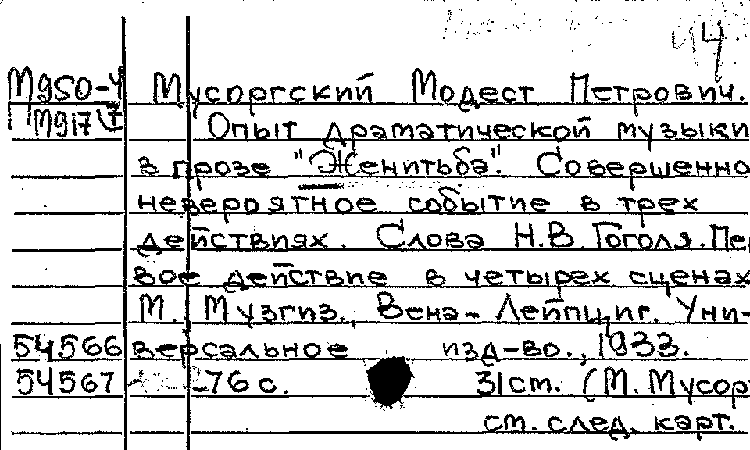 44
М950-4 Мусоргский Модест Петрович.
М917 Опыт драматической музыки
в прозе "Женитьба". Совершенно
невероятное событие в трех
действиях. Слова Н.В. Гоголя. Пер
вое действие в четырех сценах
М. Музгиз., Вена-Лейпциг. Уни-
54566 версальное изд-во., 1933.
54567 76 с. 31 см. (М. Мусор
см. след. карт.